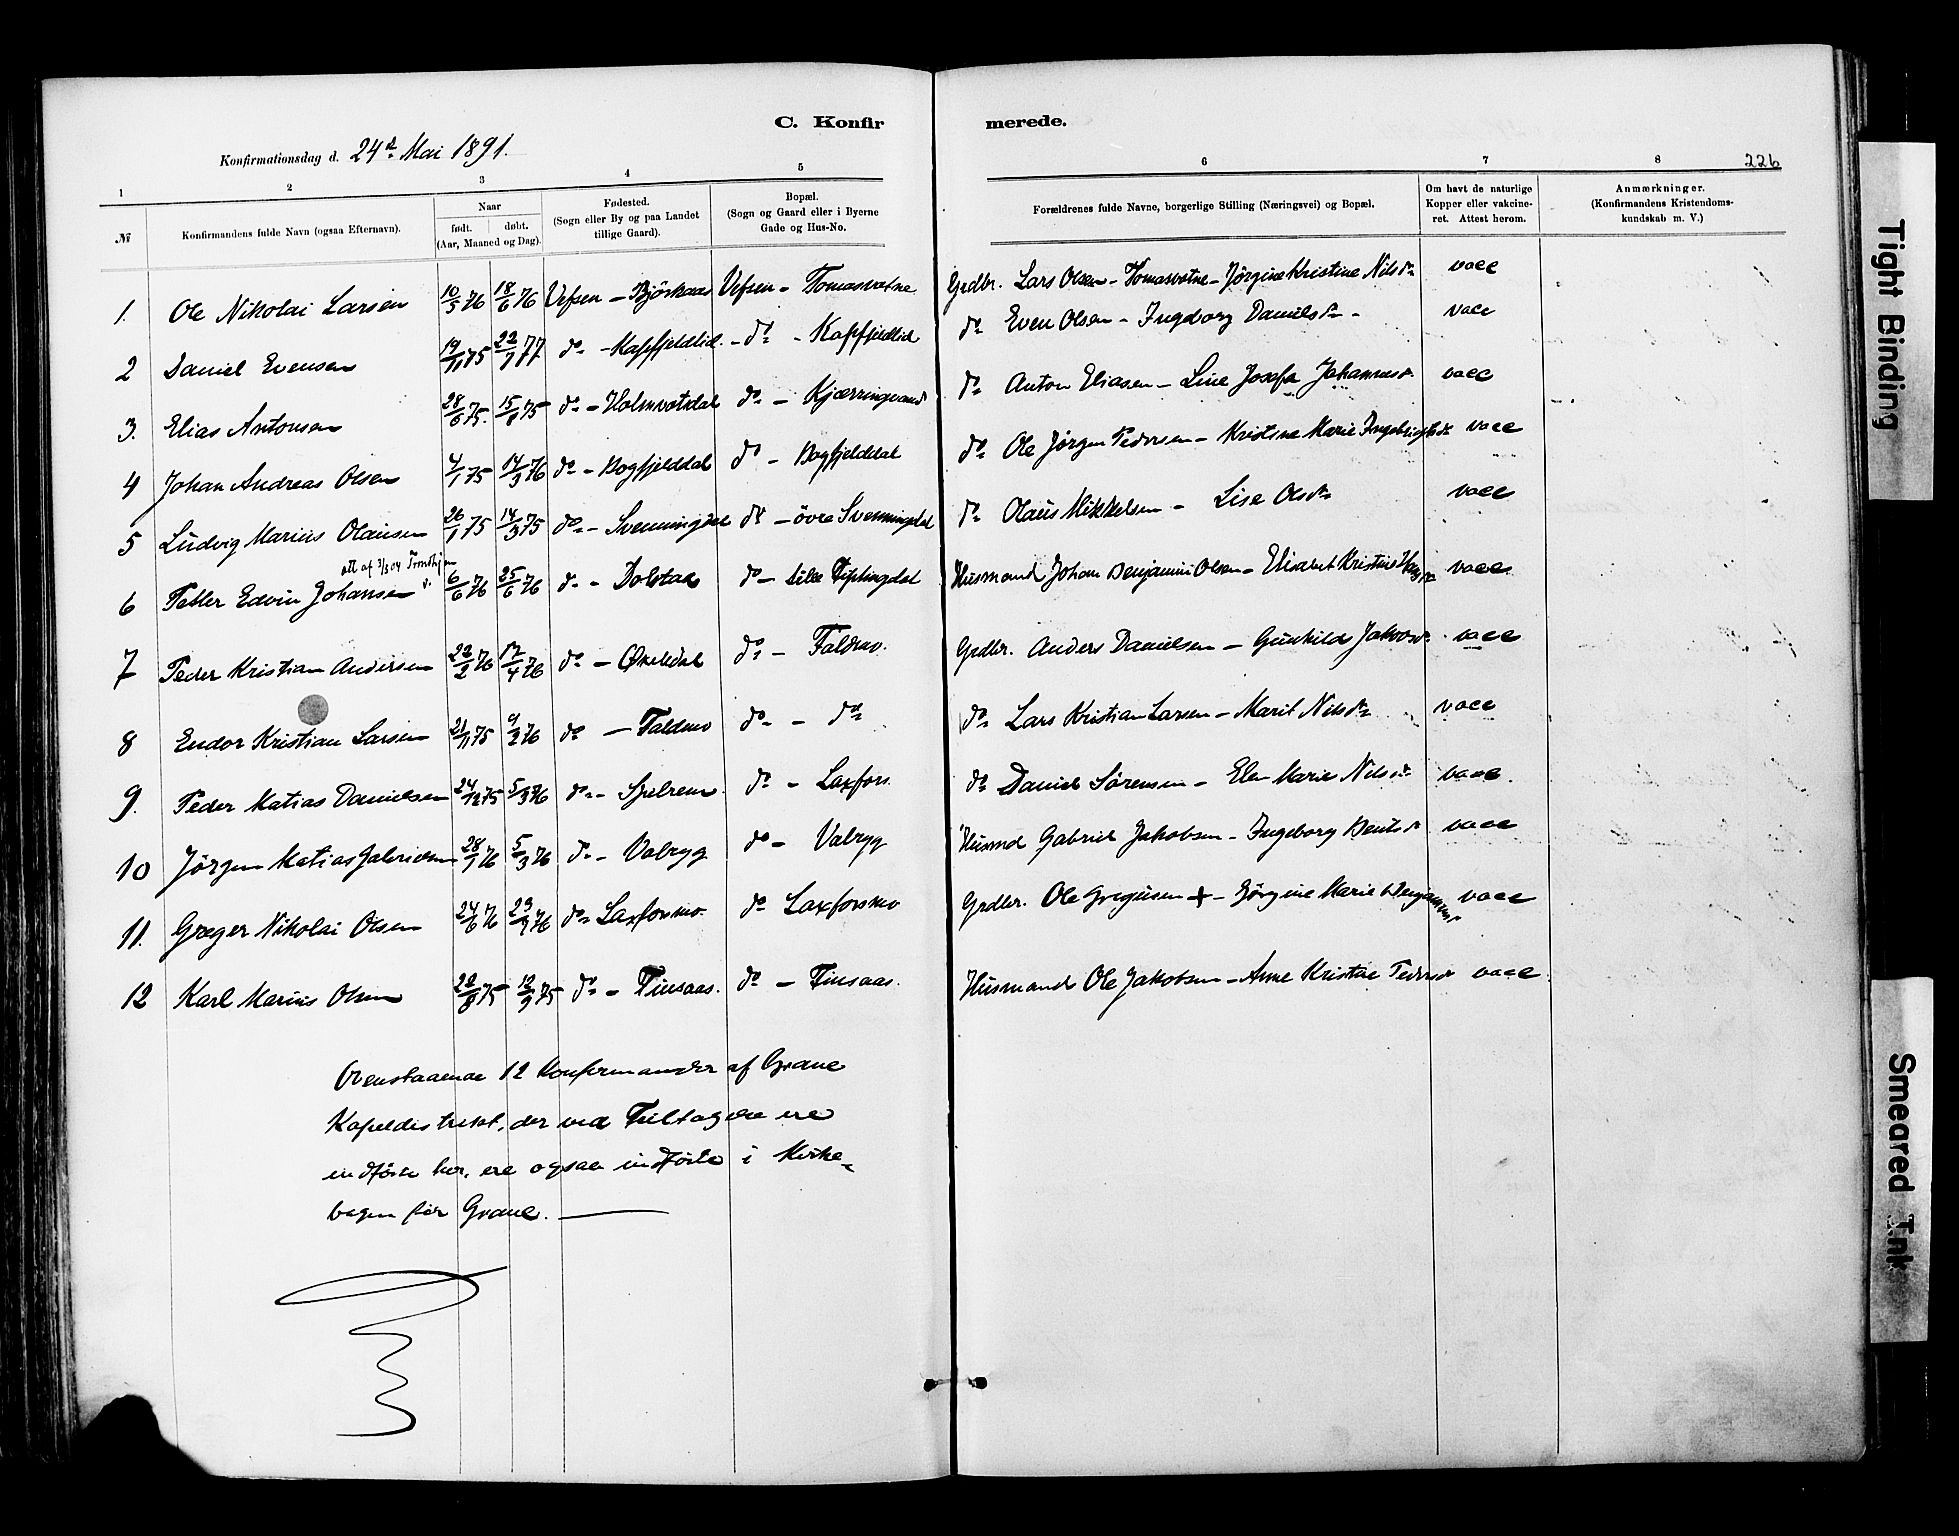 C. Konfir merede.
Konfirmationsdag d. 24de Mai 1891.
226
1 2 3 4 5 6 7 8
№ Konfirmandens fulde Navn (ogsaa Efternavn). Naar født. døbt. (Aar, Maaned og Dag). Fødested. (Sogn eller By og paa Landet tillige Gaard). Bopæl. (Sogn og Gaard eller i Byerne Gade og Hus-No. Forældrenes fulde Navne, borgerlige Stilling (Næringsvei) og Bopæl. Om havt de naturlige Kopper eller vakcineret. Attest herom. Anmærkninger. (Konfirmandens Kristendomskundskab m. V.)
1. Ole Nikolai Larsen 10/5 76 18/6 76 Vefsen - Bjørkaas Vefsen - Tomasvatne Grdbr. Lars Olsen - Tomasvatne - Jørgine Kristine Nilsdr vacc
2 Daniel Evensen 19/11 75 22/7 77 do - Kapfjeldlid - do - Kapfjeldlid do Even Olsen - Ingeborg Danielsdr - vacc
3. Elias Antonsen 28/6 75. 15/8 75 do - Holmvatdal do - Kjærringvand do Anton Eliasen - Line Josefa Johannesdr vacc
4 Johan Andreas Olsen 4/1 75 14/3 76 do - Bogfjelddal do - Bogfjelddal do Ole Jørgen Pedersen - Kristine Marie Ingebrigtsdr vacc
5 Ludvig Marius Olausen 26/1 75 14/3 75 do - Svenningdal do - øvre Svenningdal do Olaus Mikkelsen - Lise Olsdr vacc
att af 3/3 04 Trondhjem
6 Petter Edvin Johansen 6/6 76 25/6 76 do - Dolstad do - Lille Fiplingdal Husmand Johan Benjamin Olsen - Elisabet Kristine vacc
7 Peder Kristian Andersen 22/2 76 17/4 76 do - Øxeldal do - Faldmo. Grdbr. Anders Danielsen - Gunhild Jakobsdr. vacc
8 Endor Kristian Larsen 21/11 75 9/2 76 do - Faldmo do - do do Lars Kristian Larsen - Marit Nilsdr vacc
9. Peder Matias Danielsen 24/12 75 5/3 76 do - Spelremo do - Laxfors. do Daniel Sørensen - Elen Marie Nilsdr vacc.
10 Jørgen Matias Gabrielsen 28/1 76 5/3 76 do - Valryg do - Valryg Husmd Gabriel Jakobsen - Ingeborg Bentsdr vacc
11. Græger Nikolai Olsen 24/6 76 29/9 76 do Laxforsmo. do Laxforsmo Grdbr. Ole Gregusen + - Jørgine Marie Benjaminsdr vacc
12 Karl Marius Olsen 22/8 75 12/9 75 do - Finsaas. do - Finsaas. Husmand Ole Jakobsen - Anne Kristine Pedersdr vacc.
Ovenstaaende 12 Konfirmander af Grane
Kapeldistrikt, der ved Feiltagelse ere
indførte her, ere ogsaa indførte i Kirke-
bogen for Grane.
Tight Binding
Smeared Ink